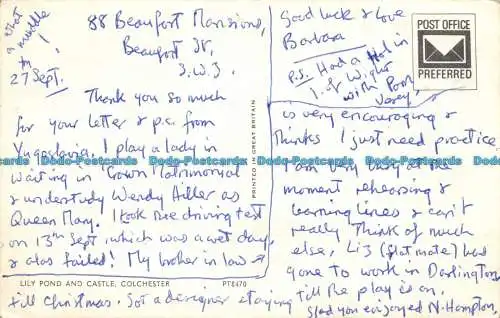 88 Beaufort Mansions,
Beaufort St.
S.W.3.
what
a muddle
27 Sept.
Thank you so much
for your letter & p.c. from
Yugoslavia. I play a lady in
waiting in "Crown Matrimonial
& understudy Wendy Hiller as
Queen Mary. I took the driving test
on 13th Sept, which was a wet day,
& alas failed! My brother in law &
LILY POND AND CASTLE, COLCHESTER PT8470
till Christmas. Got a designer staying
PRINTED IN GREAT BRITAIN
Good luck & Love
Barbara
P.S. Had a Hol in
I. of Wight
with
POST OFFICE
PREFERRED
is very encouraging &
thinks I just need practice.
I am very busy at the
moment rehearsing &
learning lines & can't
really think of much
else, Liz (flat mate) had
gone to work in Darlington
till the play is on.
Glad you enjoyed N. Hampton,
Dodo-Postcards Dodo-Postcards Dodo-Postcards Dodo-Postcards